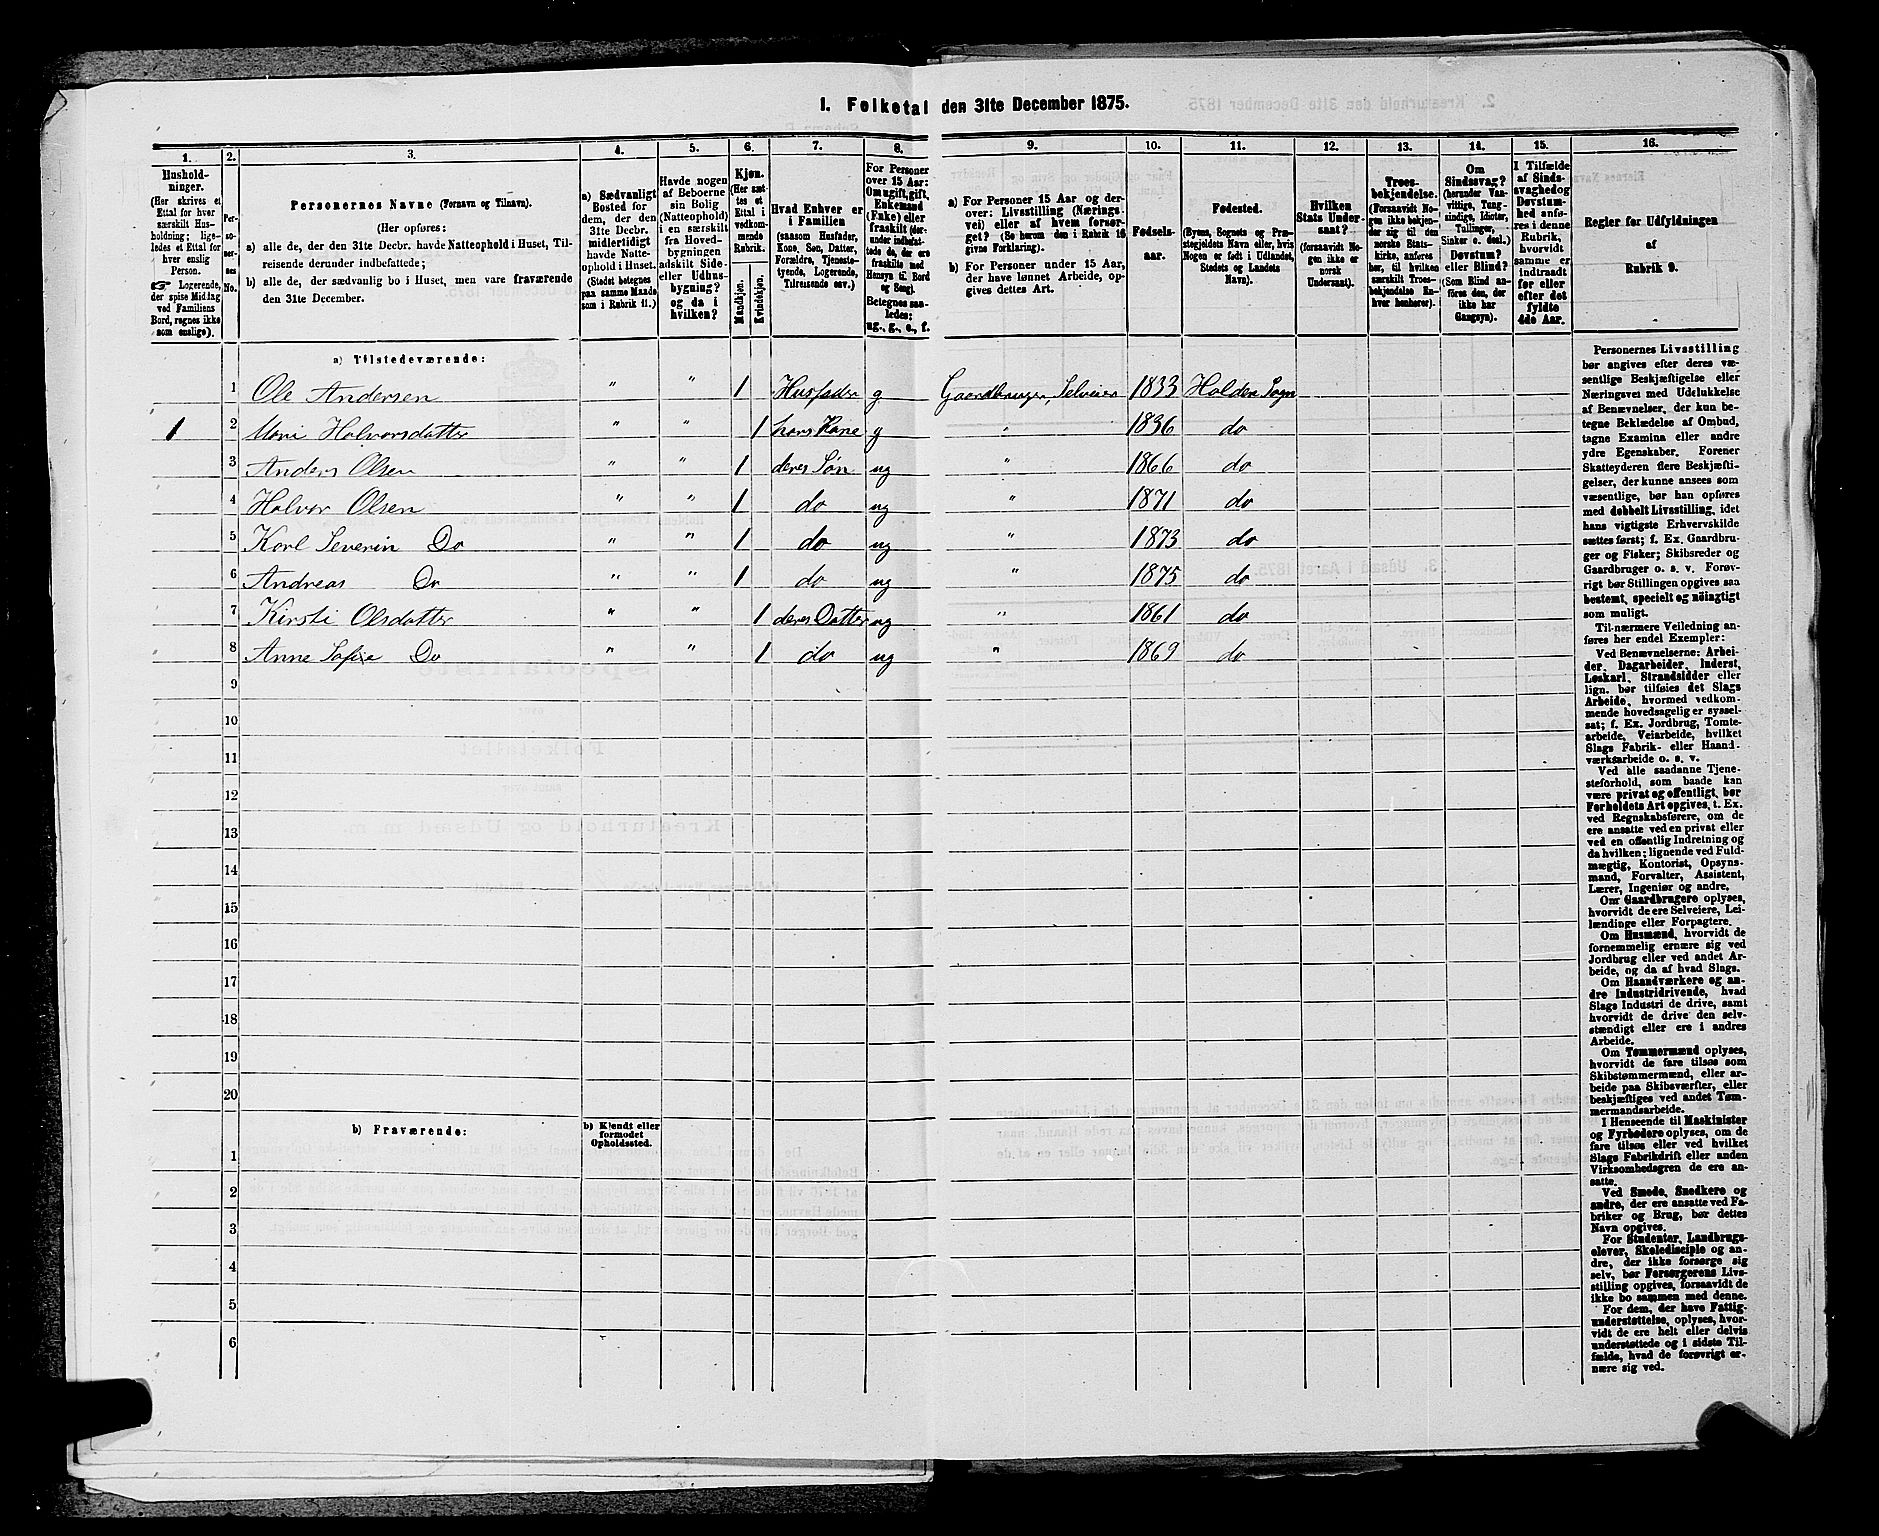 1. Folketal den 31te December 1875.
1. 2. 3. 4. 5. 6. 7. 8. 9. 10. 11. 12. 13. 14. 15. 16.
Hushold-
ninger.
(Her skrives et
Ettal for hver
særskilt Hus-
holdning; lige-
ledes et Ettal for
hver enslig
Person.
Logerende,
der spise Middag
ved Familiens
Bord, regnes ikke
som enslige).
Per-
so-
ner-
nes
No.
Personernes Navne (Fornavn og Tilnavn).
(Her opføres:
a) alle de, der den 31te Decbr. havde Natteophold i Huset, Til-
reisende derunder indbefattede;
b) alle de, der sædvanlig bo i Huset, men vare fraværende
den 31te December.
a) Sædvanligt
Bosted for
dem, der den
31te Decbr.
midlertidigt
havde Natte-
ophold i Huset.
(Stedet betegnes
paa samme Maade
som i Rubrik 11.)
Havde nogen
af Beboerne
sin Bolig
(Natteophold)
i en særskilt
fra Hoved-
bygningen
adskilt Side-
eller Udhus-
bygning?
og da i
hvilken?
Kjøn.
(Her sæt-
tes et
Ettal i
vedkom-
mende
Rubrik.
Mandkjøn.
Kvindekjøn.
Hvad Enhver er
i Familien
(saasom Husfader,
Kone, Søn, Datter,
Forældre, Tjeneste-
tyende, Logerende,
Tilreisende osv.)
For Personer
over 15 Aar:
Om ugift, gift,
Enkemand
(Enke) eller
fraskilt (der-
under indbefat-
tede de, der ere
fraskilte med
Hensyn til Bord
og Seng).
Betegnes saa-
ledes:
ug., g., e., f.
a) For Personer 15 Aar og der-
over: Livsstilling (Nærings-
vei) eller af hvem forsør-
get? (Se herom den i Rubrik 16
givne Forklaring).
b) For Personer under 15 Aar,
der have lønnet Arbeide, op-
gives dettes Art.
Fødsels-
aar.
Fødested.
(Byens, Sognets og Præ-
stegjeldets Navn eller, hvis
Nogen er født i Udlandet,
Stedets og Landets
Navn).
Hvilken
Stats Under-
saat?
(forsaavidt No-
gen ikke er
norsk
Undersaat).
Troes-
bekjendelse.
(Forsaavidt No-
gen ikke bekjen-
der sig til den
norske Stats-
kirke, anføres
her, til hvilken
særskilt Troes-
bekjendelse En-
hver henhører).
Om
Sindssvag?
(herunder Van-
vittige, Tung-
sindige, Idioter,
Tullinger,
Sinker o. desl.)
Døvstum?
eller Blind?
(Som Blind an-
føres den, der
ikke har
Gangsyn).
I Tilfælde
af Sinds-
svaghed og
Døvstum-
hed anfø-
res i denne
Rubrik,
hvorvidt
samme er
indtraadt
før eller
efter det
fyldte
4de Aar.
Regler for Udfyldningen
af
Rubrik 9.
a) Tilstedeværende:
1 Ole Andersen " " 1 Husfader g Gaardbruger, Selveier 1833 Holden Sogn
1 2 Mari Halvorsdatter " " 1 hans Kone g " 1836 do
3 Anders Olsen " " 1 deres Søn ug " 1866 do
4 Halvor Olsen " " 1 do ug " 1871 do
5 Karl Severin Do " " 1 do ug " 1873 do
6 Andreas Do " " 1 do ug " 1875 do
7 Kirsti Olsdatter " " 1 deres Datter ug " 1861 do
8 Anne Sofie Do " " 1 do ug " 1869 do
9
10
11
12
13
14
15
16
17
18
19
20
b) Fraværende:
b) Kjendt eller
formodet
Opholdssted.
1
2
3
4
5
6
Personernes Livsstilling
bør angives efter deres væ-
sentlige Beskjæftigelse eller
Næringsvei med Udelukkelse
af Benævnelser, der kun be-
tegne Beklædelse af Ombud,
tagne Examina eller andre
ydre Egenskaber. Forener
Skatteyderen flere Beskjæfti-
gelser, der kunne ansees som
væsentlige, bør han opføres
med dobbelt Livsstilling, idet
hans vigtigste Erhvervskilde
sættes først; f. Ex. Gaardbru-
ger og Fisker; Skibsreder og
Gaardbruger o. s. v. Forøv-
rigt bør Stillingen opgives saa
bestemt, specielt og nøiagtigt
som muligt.
Til nærmere Veiledning an-
føres her endel Exempler:
Ved Benævnelserne: Arbei-
der, Dagarbeider, Inderst,
Løskarl, Strandsidder eller
lign. bør tilføies det Slags
Arbeide, hvormed vedkom-
mende hovedsagelig er syssel-
sat; f. Ex. Jordbrug, Tomte-
arbeide, Veiarbeide, hvilket
Slags Fabrik- eller Haand-
værksarbeide o. s. v.
Ved alle saadanne Tjene-
steforhold, som baade kan
være privat og offentligt, bør
Forholdets Art opgives, t. Ex.
ved Regnskabsførere, om de
ere ansatte ved en privat eller
ved en offentlig Indretning og
da hvilken; lignende ved Fuld-
mægtig, Kontorist, Opsyns-
mand, Forvalter, Assistent,
Lærer, Ingeniør og andre.
Om Gaardbrugere oplyses,
hvorvidt de ere Selveiere, Lei-
lændinge eller Forpagtere.
Om Husmænd, hvorvidt de
fornemmelig ernære sig ved
Jordbrug eller ved andet Ar-
beide, og da af hvad Slags.
Om Haandværkere og an-
dre Industridrivende, hvad
Slags Industri de drive, samt
hvorvidt de drive den selv-
stændigt eller ere i andres
Arbeide.
Om Tømmermænd oplyses,
hvorvidt de fare tilsøs som
Skibstømmermænd, eller ar-
beide paa Skibsværfter, eller
beskjæftiges ved andet Tøm-
mermandsarbeide.
I Henseende til Maskinister
og Fyrbødere oplyses, om de
fare tilsøs eller ved hvilket
Slags Fabrikdrift eller anden
Virksomhedsgren de ere an-
satte.
Ved Smede, Snedkere og
andre, der ere ansatte ved Fa-
briker og Brug, bør dettes
Navn opgives.
For Studenter, Landbrugs-
elever, Skoledisciple og an-
dre, der ikke forsørge sig
selv, bør Forsørgerens Livs-
stilling opgives, forsaavidt de
ikke bo sammen med denne.
For dem, der have Fattig-
understøttelse, oplyses, hvor-
vidt de ere helt eller delvis
understøttede og i sidste Til-
fælde, hvad de forøvrigt er-
nære sig ved.